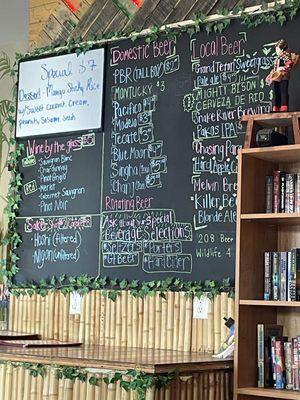 Special $7
Dessert - Mango Sticky Rice
w/ Sweet Coconut Cream,
peanuts, Sesame Seeds
Wine by the Glass
Sauvignon Blanc
Pinot Grigio
Riesling
Merlot
Cabernet Sauvignon
Pinot Noir
Sake
Hoshi (filtered)
Nigori (unfiltered)
Domestic Beer
PBR (TALL BOY)
MONTUCKY $3
Pacifico
Modelo
Tecate
Blue Moon
Singha
Chang
Rotating Beer
Ask About our Special
Beverages Selections
Seltzers
Porters
GF Beer
Hard Cider
Local Beer
Grand Teton Sweetgrass
Pale Ale $4
MIGHTY BISON $
CERVEZA DE RIO
Snake River Brewing
Pakos IPA
Chasing
Hard Apple
Melvin Brew
Killer Bee
Blonde Ale
208 Beer
Wildlife